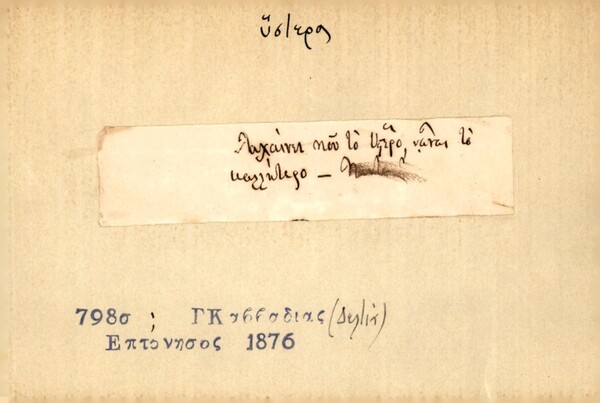 ὕστερος
Λαχαίνει ποῦ τὸ ὕστερο, νἆναι τὸ
καλλήτερο —
798σ ; ΓΚαββαδιας (Δελτία)
Επτονησος 1876